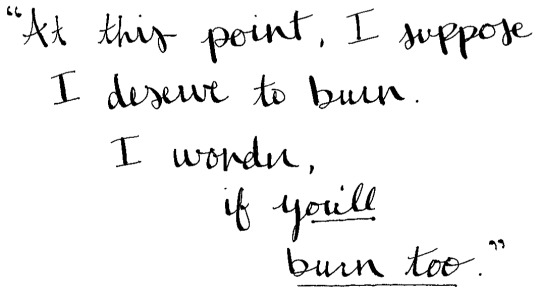 “At this point, I suppose
I deserve to burn.
I wonder,
if you'll
burn too.”